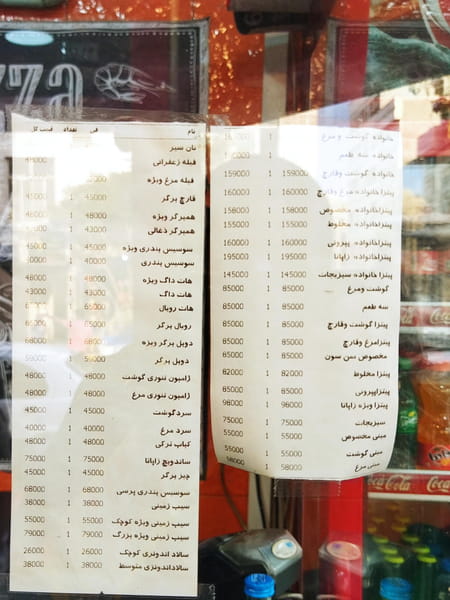 zza
نام فی تعداد قیمت کل
نان سیر
قیله زعفرانی 48000
قیله مرغ ویژه
قارچ برگر 45000 1 45000
همبرگر ویژه 48000 1 48000
همبرگر ذغالی
سوسیس پندری ویژه 45000 1 45000
سوسیس پندری 40000 1 40000
هات داگ ویژه 48000 1 48000
هات داگ 43000 1 43000
هات رویال
رویال برگر 65000 1 65000
دوبل برگر ویژه 68000 1 68000
دوبل برگر 59000 1 59000
ژامبون تنوری گوشت 48000 1 48000
ژامبون تنوری مرغ 48000 1 48000
سردگوشت 45000 1 45000
سرد مرغ 40000 1 40000
کباب ترکی 48000 1 48000
ساندویچ زاپاتا 75000 1 75000
چیز برگر 45000 1 45000
سوسیس پندری پرسی 68000 1 68000
سیب زمینی 38000 1 38000
سیب زمینی ویژه کوچک 55000 1 55000
سیب زمینی ویژه بزرگ 79000 1 79000
سالاد اندونزی کوچک 26000 1 26000
سالاداندونزی متوسط 38000 1 38000
خانواده گوشت و مرغ 1
خانواده سه طعم 1
خانواده گوشت وقارچ 159000 1 159000
پیتزاخانواده مرغ وقارچ 160000 1 160000
پیتزاخانواده مخصوص 158000 1 158000
پیتزاخانواده مخلوط 155000 1 155000
پیتزاخانواده پپرونی 160000 1 160000
پیتزاخانواده زاپاتا 195000 1 195000
پیتزا خانواده سبزیجات 145000 1 145000
گوشت ومرغ 85000 1 85000
سه طعم 85000 1 85000
پیتزا گوشت وقارچ 85000 1 85000
پیتزامرغ وقارچ 85000 1 85000
مخصوص سن سون 85000 1 85000
پیتزا مخلوط 82000 1 82000
پیتزاپپرونی 85000 1 85000
پیتزا ویژه زاپاتا 98000 1 98000
سبزیجات 75000 1 75000
مینی مخصوص 55000 1 55000
مینی گوشت 55000 1 55000
مینی مرغ 58000 1 58000
Coca-Cola
Coca-Cola